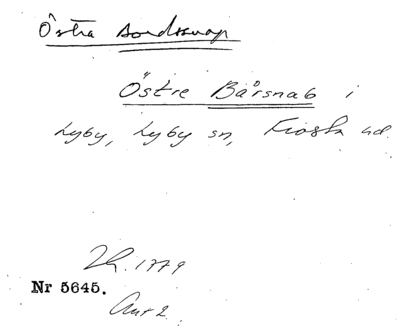 Östra Bordssnap
Östre Bårsnab i
Lyby, Lyby sn, Frosta hd
Lh. 1779
Nr 5645.
Akt 2